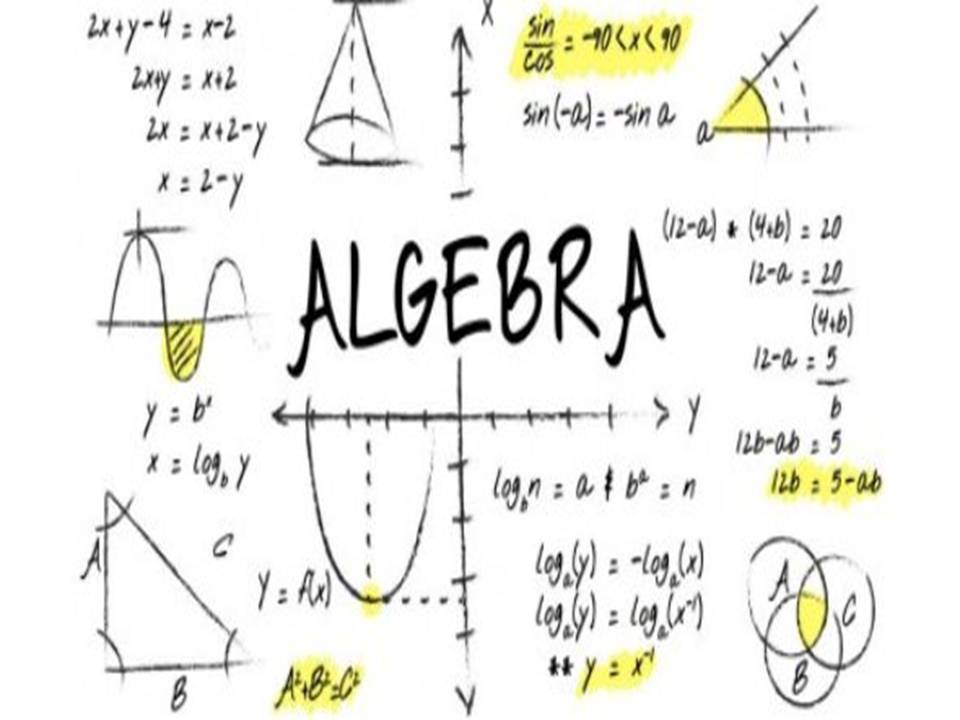 2x+y-4 = x-2
2x+y = x+2
2x = x+2-y
x = 2-y
x
sin/cos = -90<x<90
sin(-a) = -sin a
a
(12-a) * (4+b) = 20
12-a = 20/(4+b)
12-a = 5/b
12b-ab = 5
12b = 5-ab
ALGEBRA
y = bˣ
x = log_b y
y
log_b n = a & bᵃ = n
log_a(y) = -log_a(x)
log_a(y) = log_a(x⁻¹)
** y = x⁻¹
A
C
B
Y = f(x)
A²+B²=C²
y
A
C
B